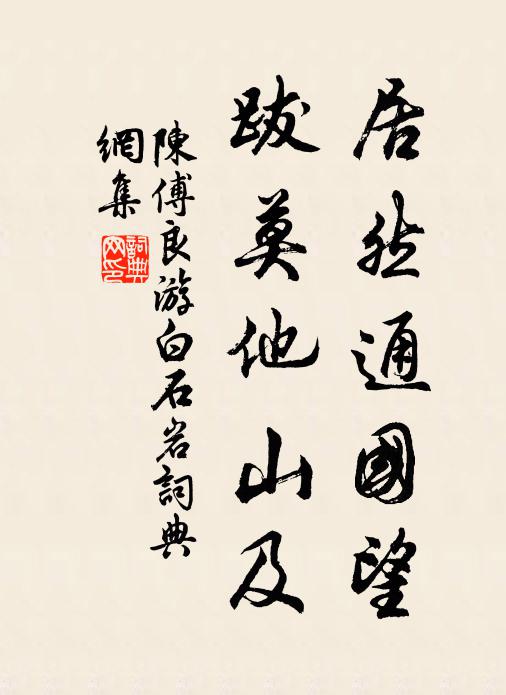 居然通國望
跋莫他山及
陳傅良游白石岩詞典
網集
詞典网印